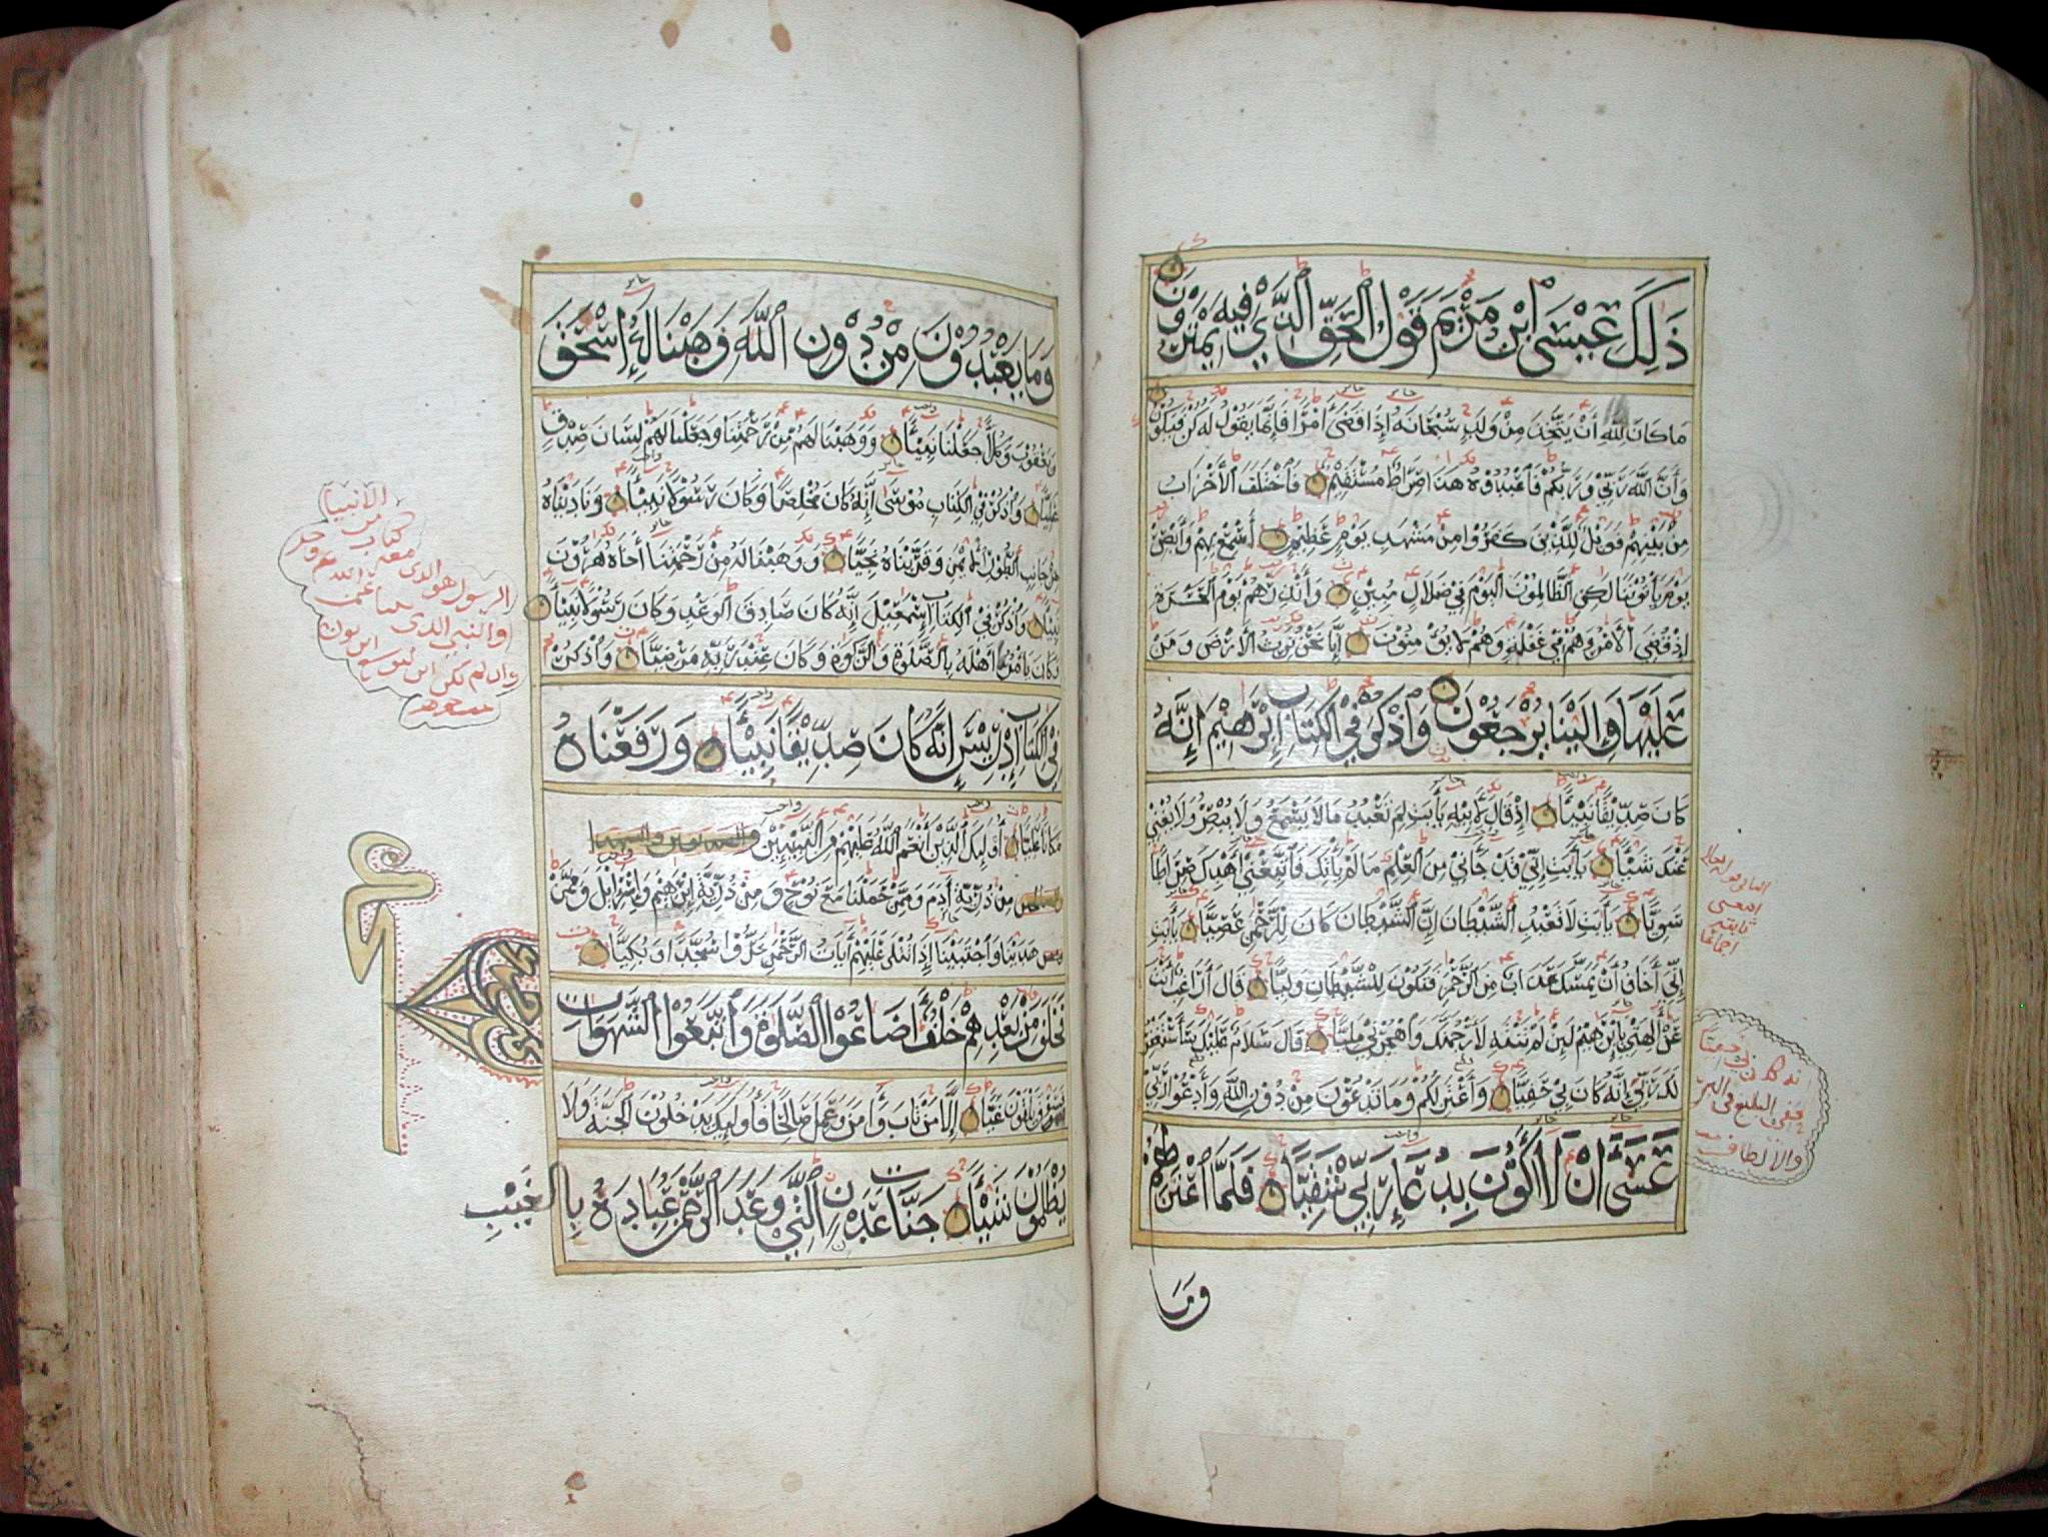 ذَلِكَ عِيْسَى ابْنُ مَرْيَمَ قَوْلَ الْحَقِّ الَّذِي فِيهِ يَمْتَرُوْنَ
مَا كَانَ لِلَّهِ أَنْ يَتَّخِذَ مِنْ وَلَدٍ سُبْحَانَهُ إِذَا قَضَى أَمْرًا فَإِنَّمَا يَقُوْلُ لَهُ كُنْ فَيَكُوْنُ
وَأَنَّ اللَّهَ رَبِّي وَرَبُّكُمْ فَاعْبُدُوْهُ هَذَا صِرَاطٌ مُسْتَقِيْمٌ فَاخْتَلَفَ الْأَحْزَابُ
مِنْ بَيْنِهِمْ فَوَيْلٌ لِلَّذِيْنَ كَفَرُوا مِنْ مَشْهَدِ يَوْمٍ عَظِيْمٍ أَسْمِعْ بِهِمْ وَأَبْصِرْ
يَوْمَ يَأْتُوْنَنَا لَكِنِ الظَّالِمُوْنَ الْيَوْمَ فِي ضَلَالٍ مُبِيْنٍ وَأَنْذِرْهُمْ يَوْمَ الْحَسْرَةِ
إِذْ قُضِيَ الْأَمْرُ وَهُمْ فِي غَفْلَةٍ وَهُمْ لَا يُؤْمِنُوْنَ إِنَّا نَحْنُ نَرِثُ الْأَرْضَ وَمَنْ
عَلَيْهَا وَإِلَيْنَا يُرْجَعُوْنَ وَاذْكُرْ فِي الْكِتَابِ إِبْرَهِيْمَ إِنَّهُ
كَانَ صِدِّيْقًا نَبِيًّا إِذْ قَالَ لِأَبِيْهِ يَأَبَتِ لِمَ تَعْبُدُ مَا لَا يَسْمَعُ وَلَا يُبْصِرُ وَلَا يُغْنِي
عَنْكَ شَيْئًا يَأَبَتِ إِنِّي قَدْ جَاءَنِي مِنَ الْعِلْمِ مَا لَمْ يَأْتِكَ فَاتَّبِعْنِي أَهْدِكَ صِرَاطًا
سَوِيًّا يَأَبَتِ لَا تَعْبُدِ الشَّيْطَانَ إِنَّ الشَّيْطَانَ كَانَ لِلرَّحْمَنِ عَصِيًّا يَأَبَتِ
إِنِّي أَخَافُ أَنْ يَمَسَّكَ عَذَابٌ مِنَ الرَّحْمَنِ فَتَكُوْنَ لِلشَّيْطَانِ وَلِيًّا قَالَ أَرَاغِبٌ أَنْتَ
عَنْ آلِهَتِي يَإِبْرَهِيْمُ لَئِنْ لَمْ تَنْتَهِ لَأَرْجُمَنَّكَ وَاهْجُرْنِي مَلِيًّا قَالَ سَلَامٌ عَلَيْكَ سَأَسْتَغْفِرُ
لَكَ رَبِّي إِنَّهُ كَانَ بِي حَفِيًّا وَأَعْتَزِلُكُمْ وَمَا تَدْعُوْنَ مِنْ دُوْنِ اللَّهِ وَأَدْعُوا رَبِّي
عَسَى أَنْ لَا أَكُوْنَ بِدُعَاءِ رَبِّي شَقِيًّا فَلَمَّا اعْتَزَلَهُمْ
وَمَا
وَمَا يَعْبُدُوْنَ مِنْ دُوْنِ اللَّهِ وَهَبْنَا لَهُ إِسْحَقَ
وَيَعْقُوْبَ وَكُلًّا جَعَلْنَا نَبِيًّا وَوَهَبْنَا لَهُمْ مِنْ رَحْمَتِنَا وَجَعَلْنَا لَهُمْ لِسَانَ صِدْقٍ
عَلِيًّا وَاذْكُرْ فِي الْكِتَابِ مُوْسَى إِنَّهُ كَانَ مُخْلِصًا وَكَانَ رَسُوْلًا نَبِيًّا وَنَادَيْنَاهُ
مِنْ جَانِبِ الطُّوْرِ الْأَيْمَنِ وَقَرَّبْنَاهُ نَجِيًّا وَوَهَبْنَا لَهُ مِنْ رَحْمَتِنَا أَخَاهُ هَرُوْنَ
نَبِيًّا وَاذْكُرْ فِي الْكِتَابِ إِسْمَعِيْلَ إِنَّهُ كَانَ صَادِقَ الْوَعْدِ وَكَانَ رَسُوْلًا نَبِيًّا
وَكَانَ يَأْمُرُ أَهْلَهُ بِالصَّلَوةِ وَالزَّكَوةِ وَكَانَ عِنْدَ رَبِّهِ مَرْضِيًّا وَاذْكُرْ
فِي الْكِتَابِ إِدْرِيْسَ إِنَّهُ كَانَ صِدِّيْقًا نَبِيًّا وَرَفَعْنَاهُ
مَكَانًا عَلِيًّا أُولَئِكَ الَّذِيْنَ أَنْعَمَ اللَّهُ عَلَيْهِمْ مِنَ النَّبِيِّيْنَ والصديقين والشهدا
والصالحين مِنْ ذُرِّيَّةِ آدَمَ وَمِمَّنْ حَمَلْنَا مَعَ نُوْحٍ وَمِنْ ذُرِّيَّةِ إِبْرَهِيْمَ وَإِسْرَائِلَ وَمِمَّنْ
هَدَيْنَا وَاجْتَبَيْنَا إِذَا تُتْلَى عَلَيْهِمْ آيَاتُ الرَّحْمَنِ خَرُّوْا سُجَّدًا وَبُكِيًّا
فَخَلَفَ مِنْ بَعْدِهِمْ خَلْفٌ أَضَاعُوْا الصَّلَوةَ وَاتَّبَعُوْا الشَّهَوَاتِ
فَسَوْفَ يَلْقَوْنَ غَيًّا إِلَّا مَنْ تَابَ وَآمَنَ وَعَمِلَ صَالِحًا فَأُولَئِكَ يَدْخُلُوْنَ الْجَنَّةَ وَلَا
يُظْلَمُوْنَ شَيْئًا جَنَّاتِ عَدْنٍ الَّتِي وَعَدَ الرَّحْمَنُ عِبَادَهُ بِالْغَيْبِ
الانبيا
من
كتاب
الرسول هو الذي معه
والنبي الذي
وان لم يكن